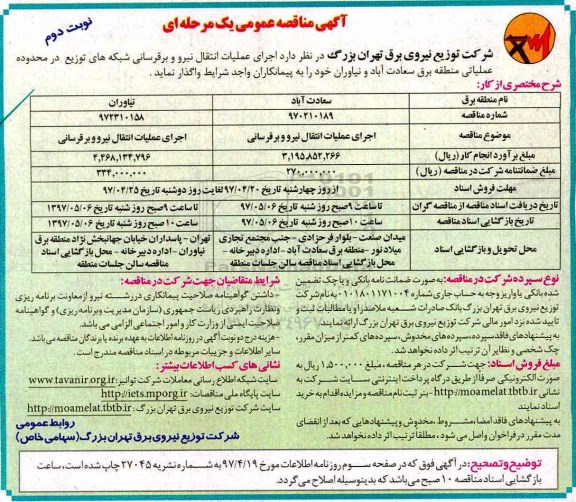 آگهی مناقصه عمومی یک مرحله ای
نوبت دوم
شرکت توزیع نیروی برق تهران بزرگ در نظر دارد اجرای عملیات انتقال نیرو و برقرسانی شبکه های توزیع در محدوده
عملیاتی منطقه برق سعادت آباد و نیاوران خود را به پیمانکاران واجد شرایط واگذار نماید.
شرح مختصری از کار:
نام منطقه برق سعادت آباد نیاوران
شماره مناقصه ۹۷۰۲۱۰۱۸۹ ۹۷۲۳۱۰۱۵۸
موضوع مناقصه اجرای عملیات انتقال نیرو و برقرسانی اجرای عملیات انتقال نیرو و برقرسانی
مبلغ برآورد انجام کار (ریال) ۳,۱۹۵,۸۵۲,۲۶۶ ۴,۴۶۸,۱۳۴,۷۹۶
مبلغ ضمانتنامه شرکت در مناقصه (ریال) ۲۷۰,۰۰۰,۰۰۰ ۳۳۴,۰۰۰,۰۰۰
مهلت فروش اسناد از روز چهارشنبه تاریخ ۹۷/۰۴/۲۰ لغایت روز دوشنبه تاریخ ۹۷/۰۴/۲۵
تاریخ دریافت اسناد مناقصه از مناقصه گران تا ساعت ۹ صبح روز شنبه تاریخ ۹۷/۰۵/۰۶ تا ساعت ۹ صبح روز شنبه تاریخ ۱۳۹۷/۰۵/۰۶
تاریخ بازگشایی اسناد مناقصه ساعت ۱۰ صبح روز شنبه تاریخ ۹۷/۰۵/۰۶ ساعت ۱۰ صبح روز شنبه تاریخ ۱۳۹۷/۰۵/۰۶
محل تحویل و بازگشایی اسناد
میدان صنعت - بلوار فرحزادی - جنب مجتمع تجاری
میلاد نور - منطقه برق سعادت آباد - اداره دبیرخانه -
محل بازگشایی اسناد مناقصه سالن جلسات منطقه
تهران - پاسداران خیابان جهانبخش نژاد منطقه برق
نیاوران - اداره دبیرخانه - محل بازگشایی اسناد
مناقصه سالن جلسات منطقه
نوع سپرده شرکت در مناقصه: به صورت ضمانت نامه بانکی و یا چک تضمین
شده بانکی یا واریز وجه به حساب جاری شماره ۰۱۰۱۸۰۱۱۷۱۰۰۴ به نام شرکت
توزیع نیروی برق تهران بزرگ بانک صادرات شعبه ملاصدرا و یا مطالبات ثبت و
تایید شده نزد امور مالی شرکت توزیع نیروی برق تهران بزرگ ارائه نمایند.
به پیشنهادهای فاقد سپرده، سپرده‌های مخدوش، سپرده‌های کمتر از میزان مقرر،
چک شخصی و نظایر آن ترتیب اثر داده نخواهد شد.
مبلغ فروش اسناد: جهت شرکت در هر مناقصه، مبلغ ۱,۵۰۰,۰۰۰ ریال به
صورت الکترونیکی صرفا از طریق درگاه پرداخت اینترنتی سایت شرکت به
نشانی http://moamelat.tbtb.ir - بتر ثبت نام مناقصه و مزایده اقدام به خرید
اسناد نمایند
به پیشنهادهای فاقد امضاء، مشروط، مخدوش و پیشنهادهایی که بعد از انقضای
مدت مقرر در فراخوان واصل می شود، مطلقا ترتیب اثر داده نخواهد شد.
شرایط متقاضیان جهت شرکت در مناقصه:
-داشتن گواهینامه صلاحیت پیمانکاری در رشته نیرو از معاونت برنامه ریزی
ونظارت راهبردی ریاست جمهوری (سازمان مدیریت و برنامه ریزی) و گواهینامه
صلاحیت ایمنی از وزارت کار و امور اجتماعی الزامی می باشد.
-هزینه درج دو نوبت آگهی در روزنامه اطلاعات به عهده برنده یا برندگان مناقصه می باشد.
سایر اطلاعات و جزییات مربوطه در اسناد مناقصه مندرج است.
نشانی های کسب اطلاعات بیشتر:
سایت شبکه اطلاع رسانی معاملات شرکت توانیر: www.tavanir.org.ir
سایت پایگاه ملی مناقصات: http://iets.mporg.ir
سایت شرکت توزیع نیروی برق تهران بزرگ: http://moamelat.tbtb.ir
روابط عمومی
شرکت توزیع نیروی برق تهران بزرگ (سهامی خاص)
توضیح و تصحیح: در آگهی فوق که در صفحه سوم روزنامه اطلاعات مورخ ۹۷/۴/۱۹ به شماره نشریه ۲۷۰۴۵ چاپ شده است، ساعت
بازگشایی اسناد مناقصه ۱۰ صبح می باشد که بدینوسیله اصلاح می گردد.